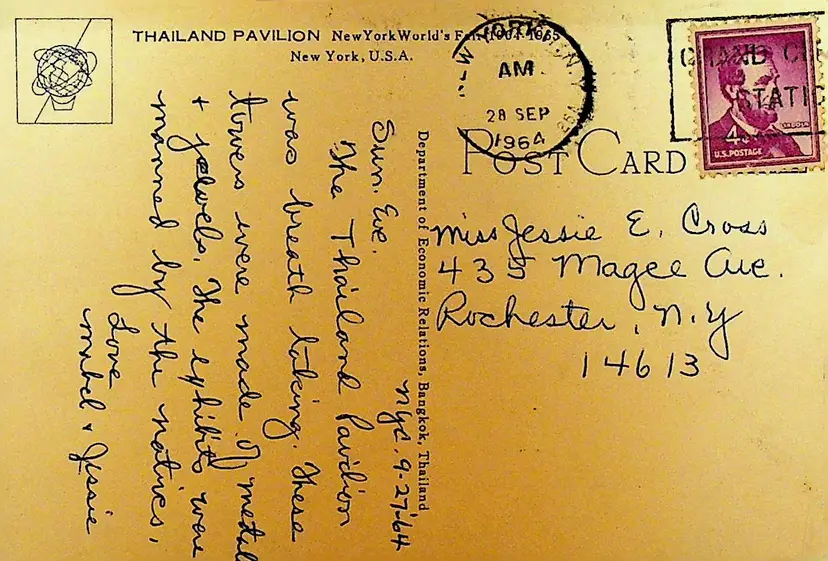 THAILAND PAVILION New York World's Fair 1964-1965
New York, U.S.A.
AM
28 SEP
1964
GRAND
STATIO
LINCOLN
4¢
U.S. POSTAGE
POST CARD
Department of Economic Relations, Bangkok, Thailand
NYC. 9-27-64
Sun. Eve.
The Thailand Pavilion
was breath taking. These
towers were made of metal
+ jewels. The exhibits were
manned by the natives.
Love
Mabel + Jessie
Miss Jessie E. Cross
435 Magee Ave.
Rochester, N.Y
14613